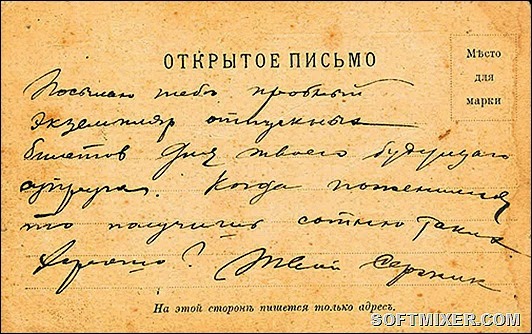 ОТКРЫТОЕ ПИСЬМО
Мѣсто
для
марки
Посылаю тебѣ пробный
экземпляр отпускных
билетов для твоего будущаго
супруга. Когда поженимся
то получишь сотню таких
Хорошо? Твой Сержик
На этой сторонѣ пишется только адресъ.
SOFTMIXER.COM